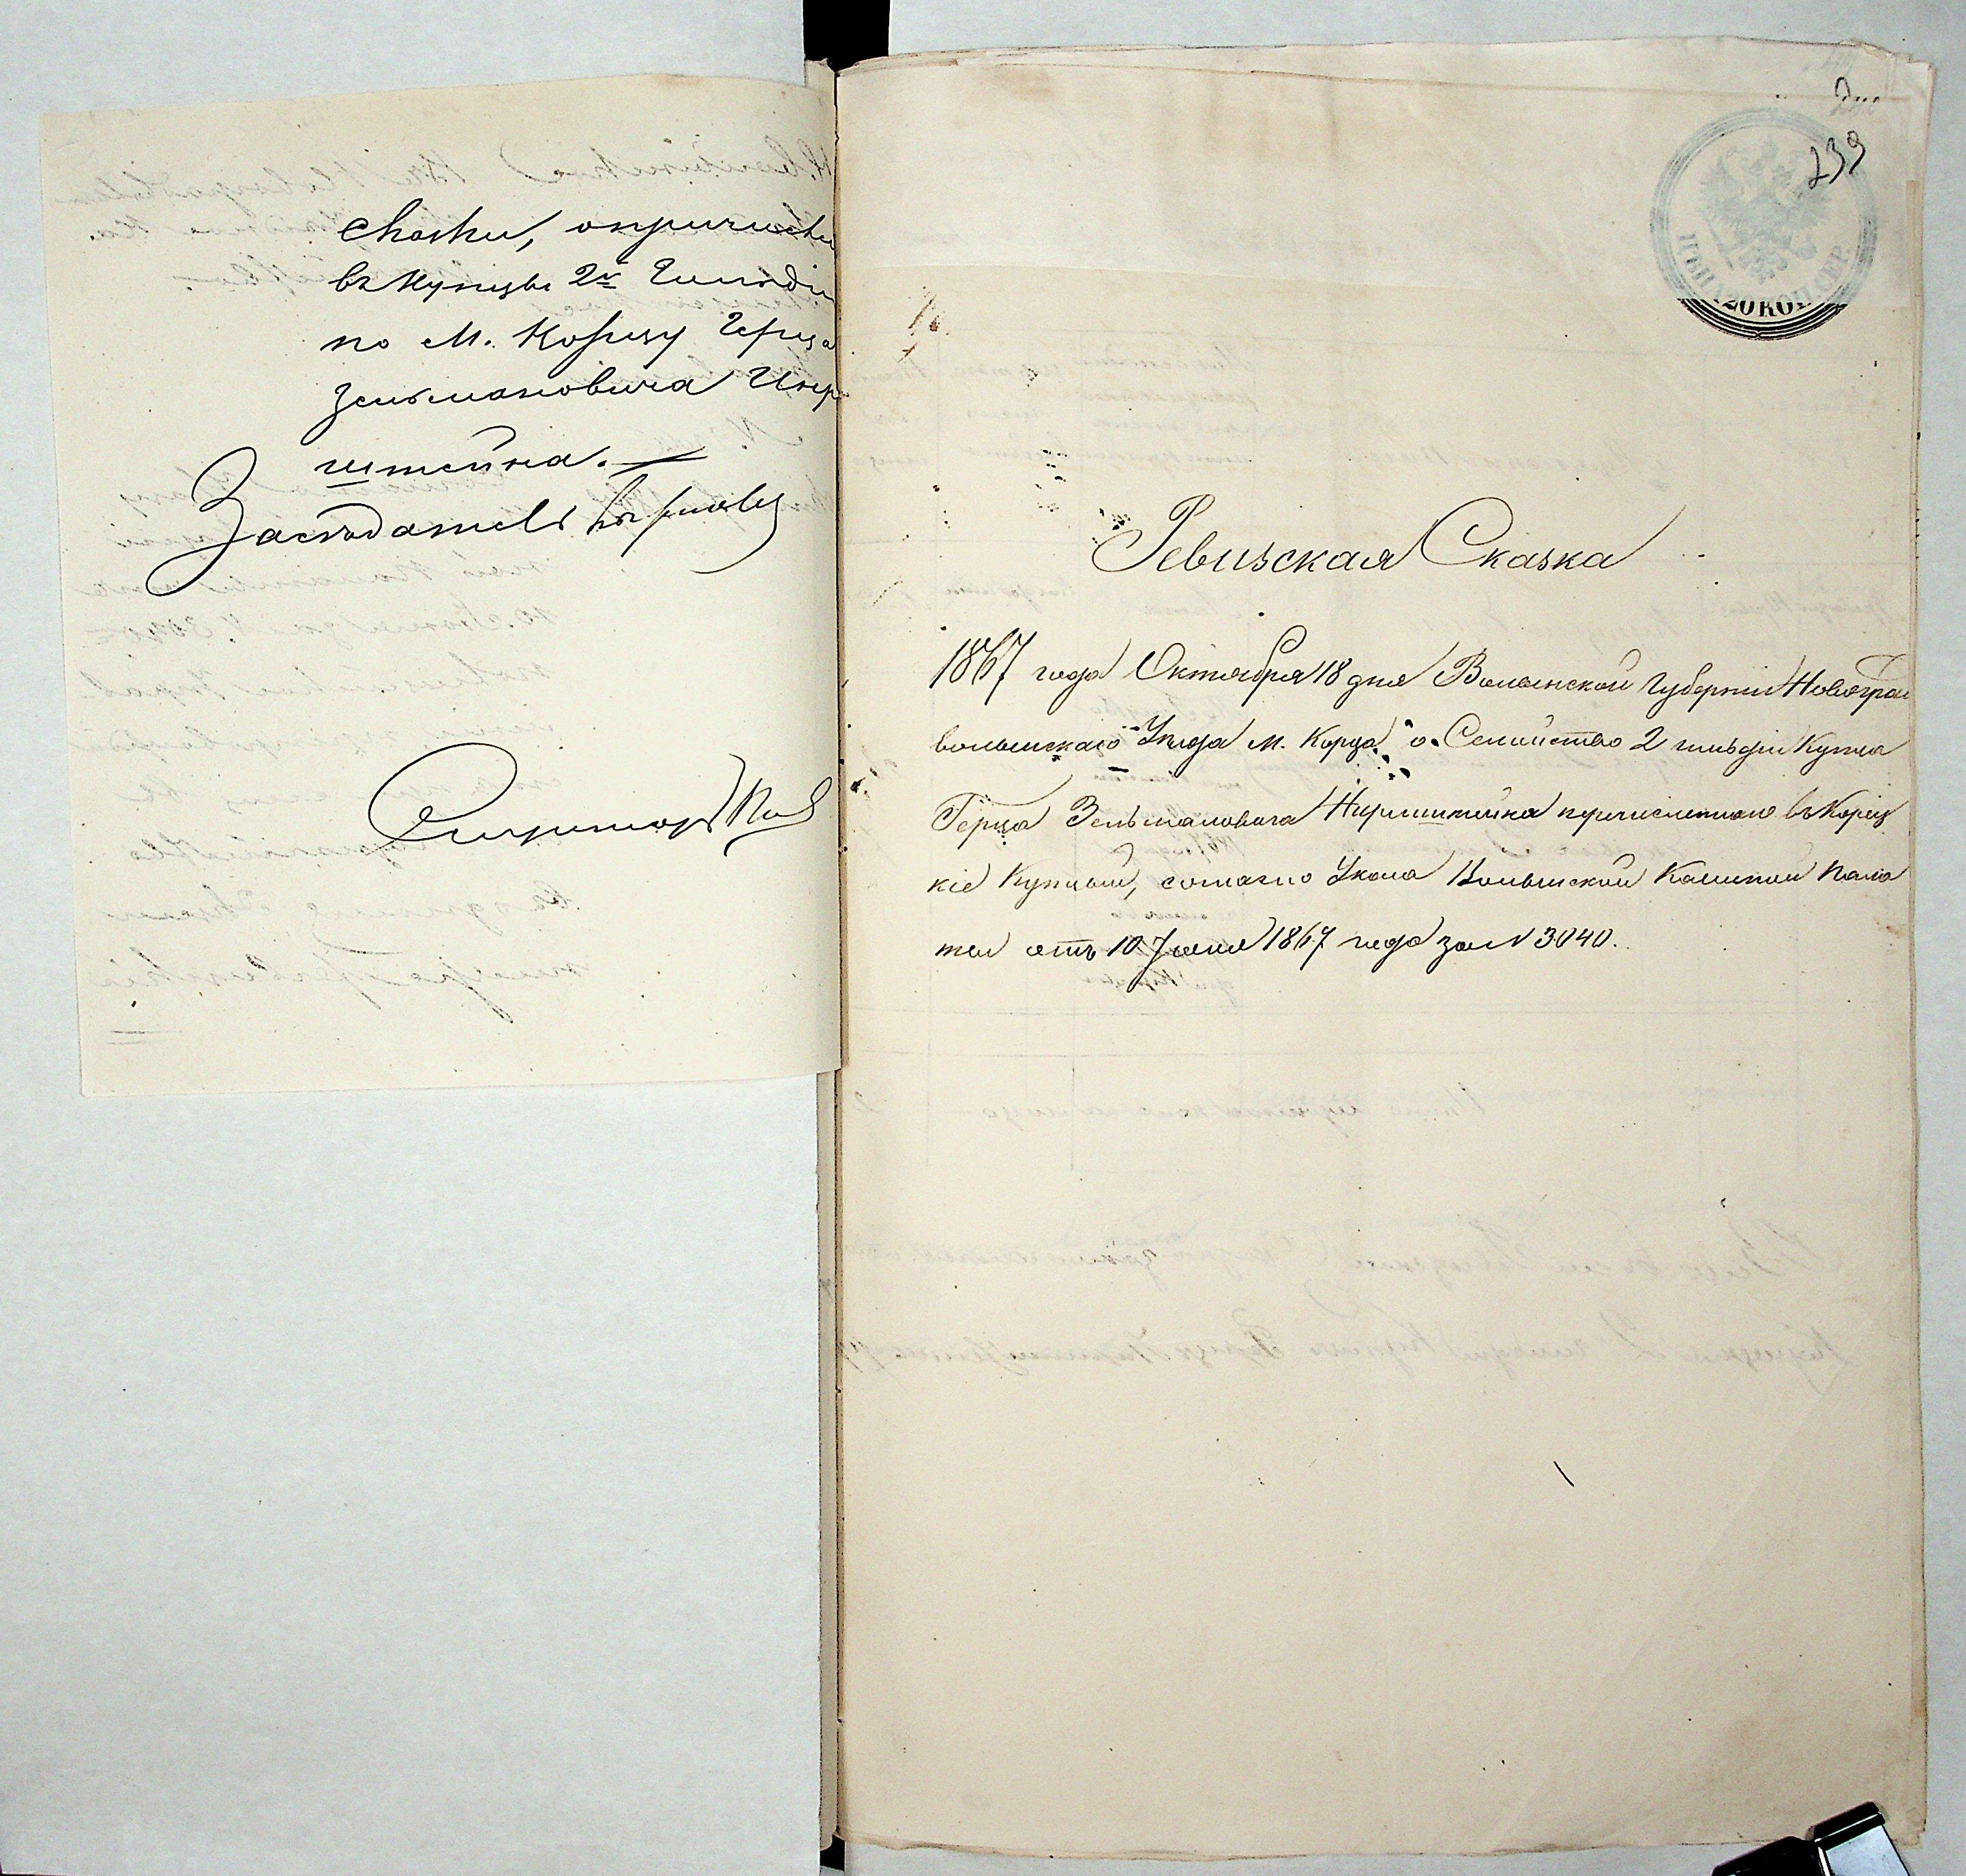 сказки, о причисл
въ Купцы 2й Гильдіи
по М. Корцу Герца
Зельмановича Нир
штейна.
Засѣдатель
239
20 КОП. СЕР.
Ревизская Сказка
1867 года Октября 18 дня Волынской Губерніи Новоград
волынскаго Уѣзда м. Корца о Семействѣ 2 гильдіи Купца
Герца Зельмановича Ниренштейна перечисленнаго въ Корец
кіе Купцы, согласно Указа Волынской Казенной Пала
ты отъ 10 Іюня 1867 года за N 3040.